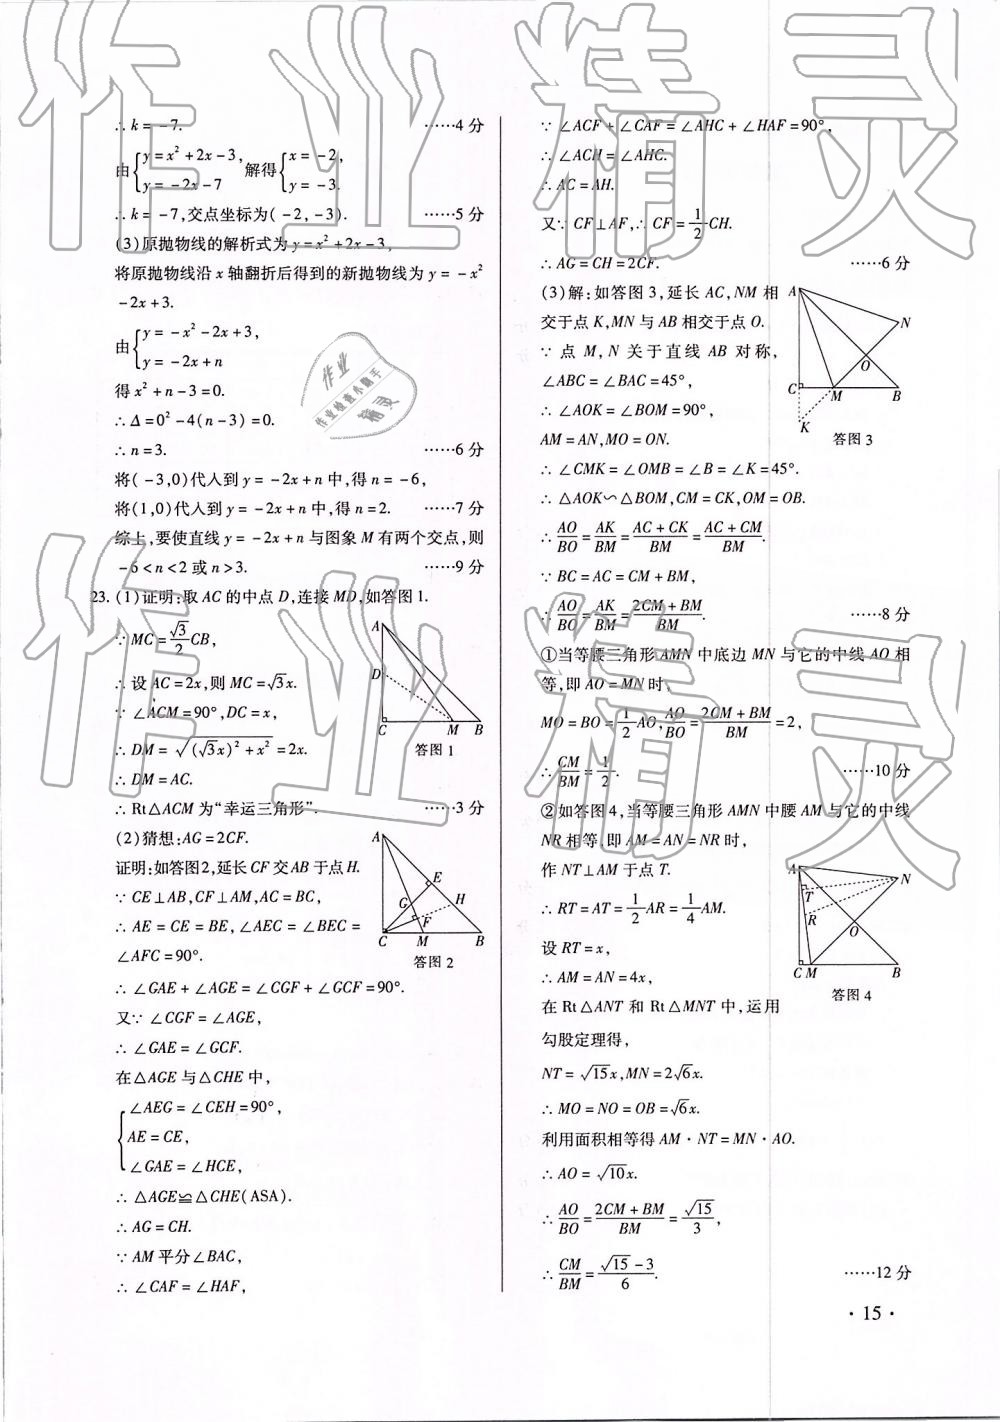 ∴ k = -7. ……4 分
由{y = x² + 2x - 3, y = -2x - 7 解得{x = -2, y = -3.
∴ k = -7,交点坐标为( -2, -3). ……5 分
(3)原抛物线的解析式为 y = x² + 2x - 3,
将原抛物线沿 x 轴翻折后得到的新抛物线为 y = -x²
-2x + 3.
由{y = -x² - 2x + 3, y = -2x + n
得 x² + n - 3 = 0.
∴ Δ = 0² - 4(n - 3) = 0.
∴ n = 3. ……6 分
将( -3,0)代入到 y = -2x + n 中,得 n = -6,
将(1,0)代入到 y = -2x + n 中,得 n = 2. ……7 分
综上,要使直线 y = -2x + n 与图象 M 有两个交点,则
-6 < n < 2 或 n > 3. ……9 分
23. (1)证明:取 AC 的中点 D,连接 MD,如答图 1.
∵ MC = √3/2 CB,
∴ 设 AC = 2x,则 MC = √3x.
∵ ∠ACM = 90°,DC = x,
∴ DM = √((√3x)² + x²) = 2x.
∴ DM = AC.
∴ Rt△ACM 为“幸运三角形”. ……3 分
A
D
C M B
答图 1
(2)猜想:AG = 2CF.
证明:如答图2,延长 CF 交 AB 于点 H.
∵ CE⊥AB,CF⊥AM,AC = BC,
∴ AE = CE = BE,∠AEC = ∠BEC =
∠AFC = 90°.
A
E
G H
F
C M B
答图 2
∴ ∠GAE + ∠AGE = ∠CGF + ∠GCF = 90°.
又∵ ∠CGF = ∠AGE,
∴ ∠GAE = ∠GCF.
在△AGE 与△CHE 中,
{∠AEG = ∠CEH = 90°,
AE = CE,
∠GAE = ∠HCE,
∴ △AGE≌△CHE(ASA).
∴ AG = CH.
∵ AM 平分∠BAC,
∴ ∠CAF = ∠HAF,
∵ ∠ACF + ∠CAF = ∠AHC + ∠HAF = 90°,
∴ ∠ACH = ∠AHC.
∴ AC = AH.
又∵ CF⊥AF,∴ CF = 1/2 CH.
∴ AG = CH = 2CF. ……6 分
(3)解:如答图 3,延长 AC,NM 相
交于点 K,MN 与 AB 相交于点 O.
∵ 点 M,N 关于直线 AB 对称,
∠ABC = ∠BAC = 45°,
∴ ∠AOK = ∠BOM = 90°,
AM = AN,MO = ON.
A
N
O
C M B
K
答图 3
∴ ∠CMK = ∠OMB = ∠B = ∠K = 45°.
∴ △AOK∽△BOM,CM = CK,OM = OB.
∴ AO/BO = AK/BM = (AC + CK)/BM = (AC + CM)/BM.
∵ BC = AC = CM + BM,
∴ AO/BO = AK/BM = (2CM + BM)/BM. ……8 分
①当等腰三角形 AMN 中底边 MN 与它的中线 AO 相
等,即 AO = MN 时,
MO = BO = 1/2 AO, AO/BO = (2CM + BM)/BM = 2,
∴ CM/BM = 1/2. ……10 分
②如答图 4,当等腰三角形 AMN 中腰 AM 与它的中线
NR 相等,即 AM = AN = NR 时,
作 NT⊥AM 于点 T.
∴ RT = AT = 1/2 AR = 1/4 AM.
设 RT = x,
∴ AM = AN = 4x,
在 Rt△ANT 和 Rt△MNT 中,运用
勾股定理得,
A
N
T
R
O
C M B
答图 4
NT = √15x,MN = 2√6x.
∴ MO = NO = OB = √6x.
利用面积相等得 AM · NT = MN · AO.
∴ AO = √10x.
∴ AO/BO = (2CM + BM)/BM = √15/3,
∴ CM/BM = (√15 - 3)/6. ……12 分
· 15 ·
作业精灵
作业精灵
作业
作业检查小助手
精灵